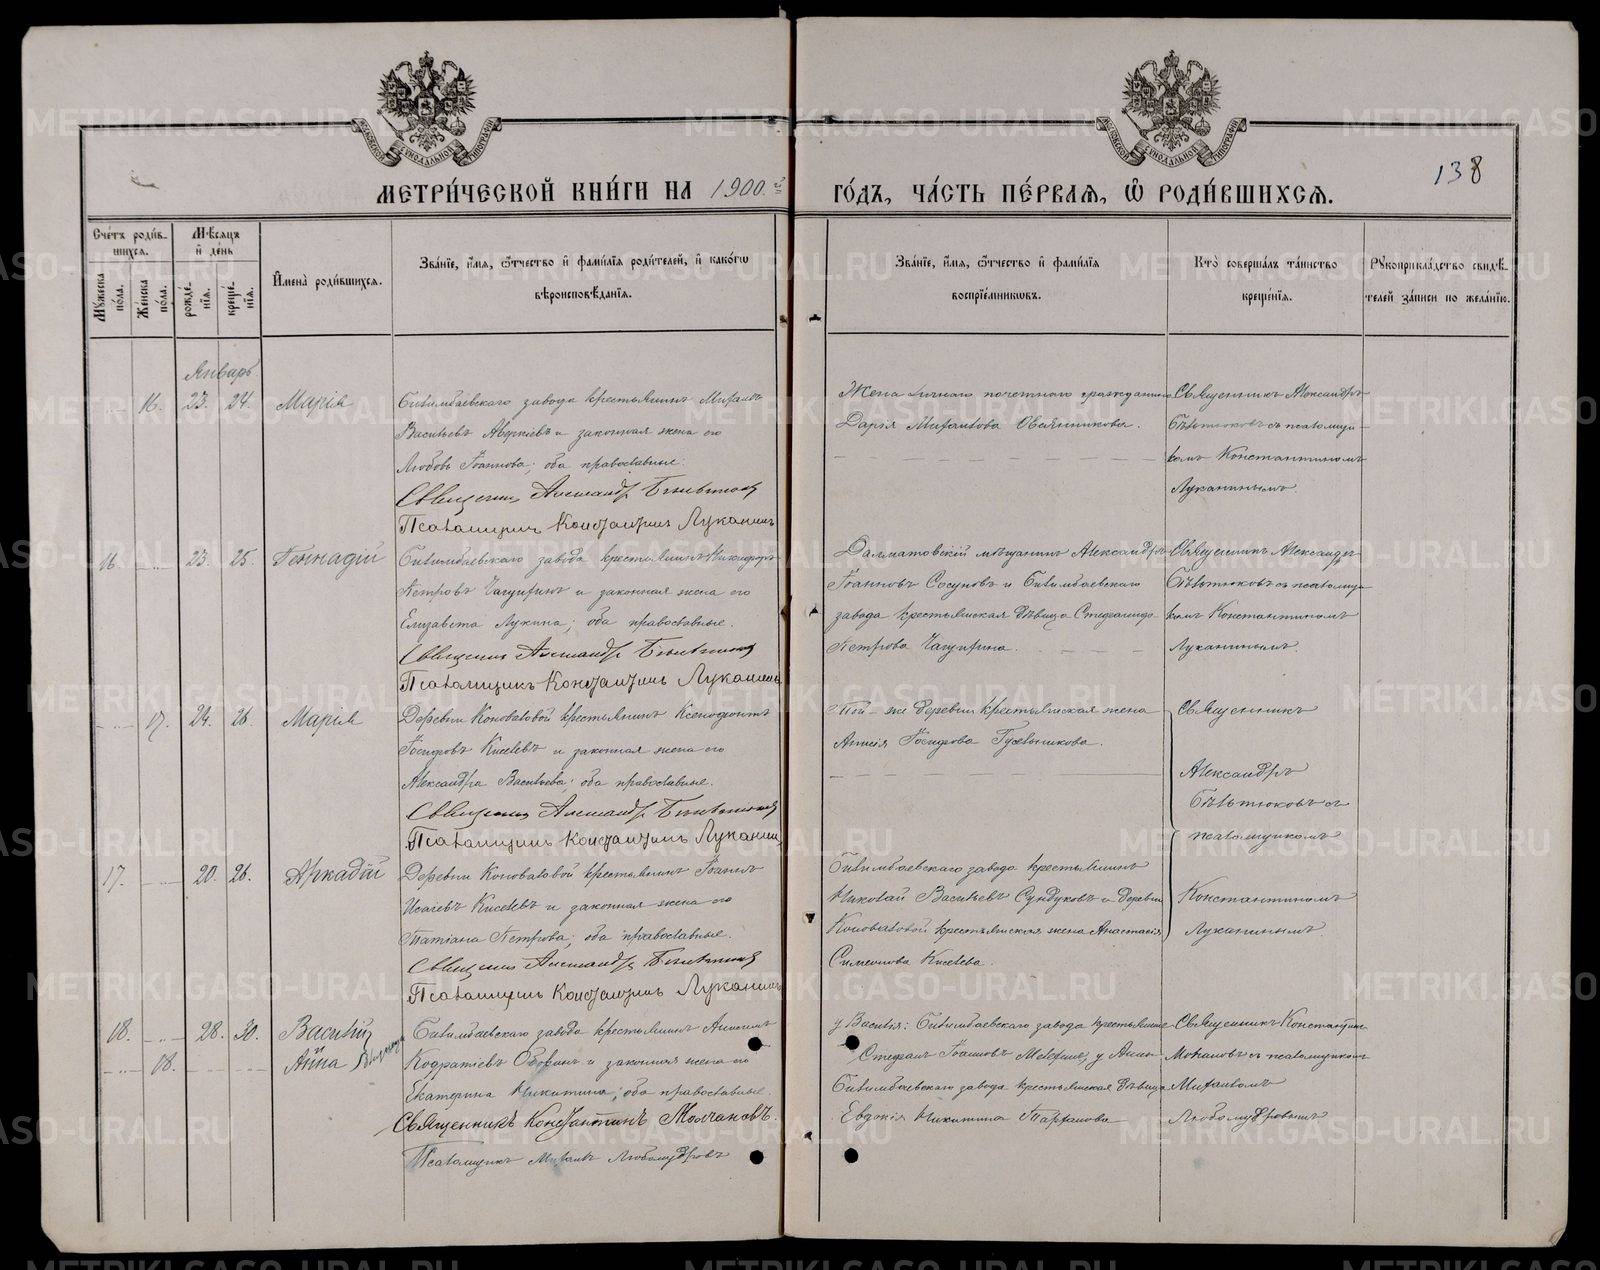 138
МЕТРИ́ЧЕСКОЙ КНИ́ГИ НА 1900.й ГО́ДЪ, ЧА́СТЬ ПЕ́РВАЯ, Ѡ҆ РОДИ́ВШИХСЯ.
Сче́тъ роди́в-
шихся.
Мꙋ́жеска по́ла.
Же́нска по́ла.
Мѣ́сяцъ
и҆ де́нь
рожде́-
нїя.
креще́-
нїя.
И҆мена̀ роди́вшихся.
Зва́нїе, и҆́мя, ѻ҆́тчество и҆ фами́лїя роди́телей, и҆ како́гѡ
вѣроисповѣ́данїя.
Зва́нїе, и҆́мя, ѻ҆́тчество и҆ фами́лїя
воспрїе́мникѡвъ.
Кто̀ соверша́лъ та́инство
креще́нїя.
Рꙋкоприкла́дство свидѣ́-
телей за́писи по жела́нїю.
Январь.
16. 23. 24. Марія
Билимбаевскаго завода крестьянинъ Михаилъ
Васильевъ Аверкіевъ и законная жена его
Любовь Іоаннова; оба православные.
Священникъ Александръ Бѣлетюковъ
Псаломщикъ Константинъ Луканинъ
Жена личнаго почетнаго гражданина
Дарія Михаилова Овчинникова.
Священникъ Александръ
Бѣлетюковъ съ псаломщи-
комъ Константиномъ
Луканинымъ.
16. 23. 25. Геннадій
Билимбаевскаго завода крестьянинъ Никифоръ
Петровъ Чагуринъ и законная жена его
Елизавета Лукина; оба православные.
Священникъ Александръ Бѣлетюковъ
Псаломщикъ Константинъ Луканинъ
Далматовскій мѣщанинъ Александръ
Іоанновъ Сосуновъ и Билимбаевскаго
завода крестьянская дѣвица Стефанида
Петрова Чагурина.
Священникъ Александръ
Бѣлетюковъ съ псаломщи-
комъ Константиномъ
Луканинымъ.
17. 24. 26. Марія
Деревни Коноваловой крестьянинъ Ксенофонтъ
Іосифовъ Киселевъ и законная жена его
Александра Васильева; оба православные.
Священникъ Александръ Бѣлетюковъ
Псаломщикъ Константинъ Луканинъ
Той-же деревни крестьянская жена
Анисія Іосифова Гусельникова.
Священникъ
Александръ
Бѣлетюковъ съ
псаломщикомъ
Константиномъ
Луканинымъ.
17. 20. 26. Аркадій
Деревни Коноваловой крестьянинъ Іоаннъ
Исаіевъ Киселевъ и законная жена его
Татіана Петрова; оба православные.
Священникъ Александръ Бѣлетюковъ
Псаломщикъ Константинъ Луканинъ
Билимбаевскаго завода крестьянинъ
Николай Васильевъ Сундуковъ и деревни
Коноваловой крестьянская жена Анастасія
Симеонова Киселева.
18. 28. 30. Василій
18. Анна
Билимбаевскаго завода крестьянинъ
Кодратіевъ Оборинъ и законная жена его
Екатерина Никитина; оба православные.
Священникъ Константинъ Молчановъ.
Псаломщикъ Михаилъ Любомудровъ
у Василія: Билимбаевскаго завода крестьянинъ
Стефанъ Іоанновъ у Анны
Билимбаевскаго завода крестьянская дѣвица
Евдокія Никитина
Священникъ Константинъ
Молчановъ съ псаломщикомъ
Михаиломъ
Любомудровымъ
METRIKI.GASO-URAL.RU